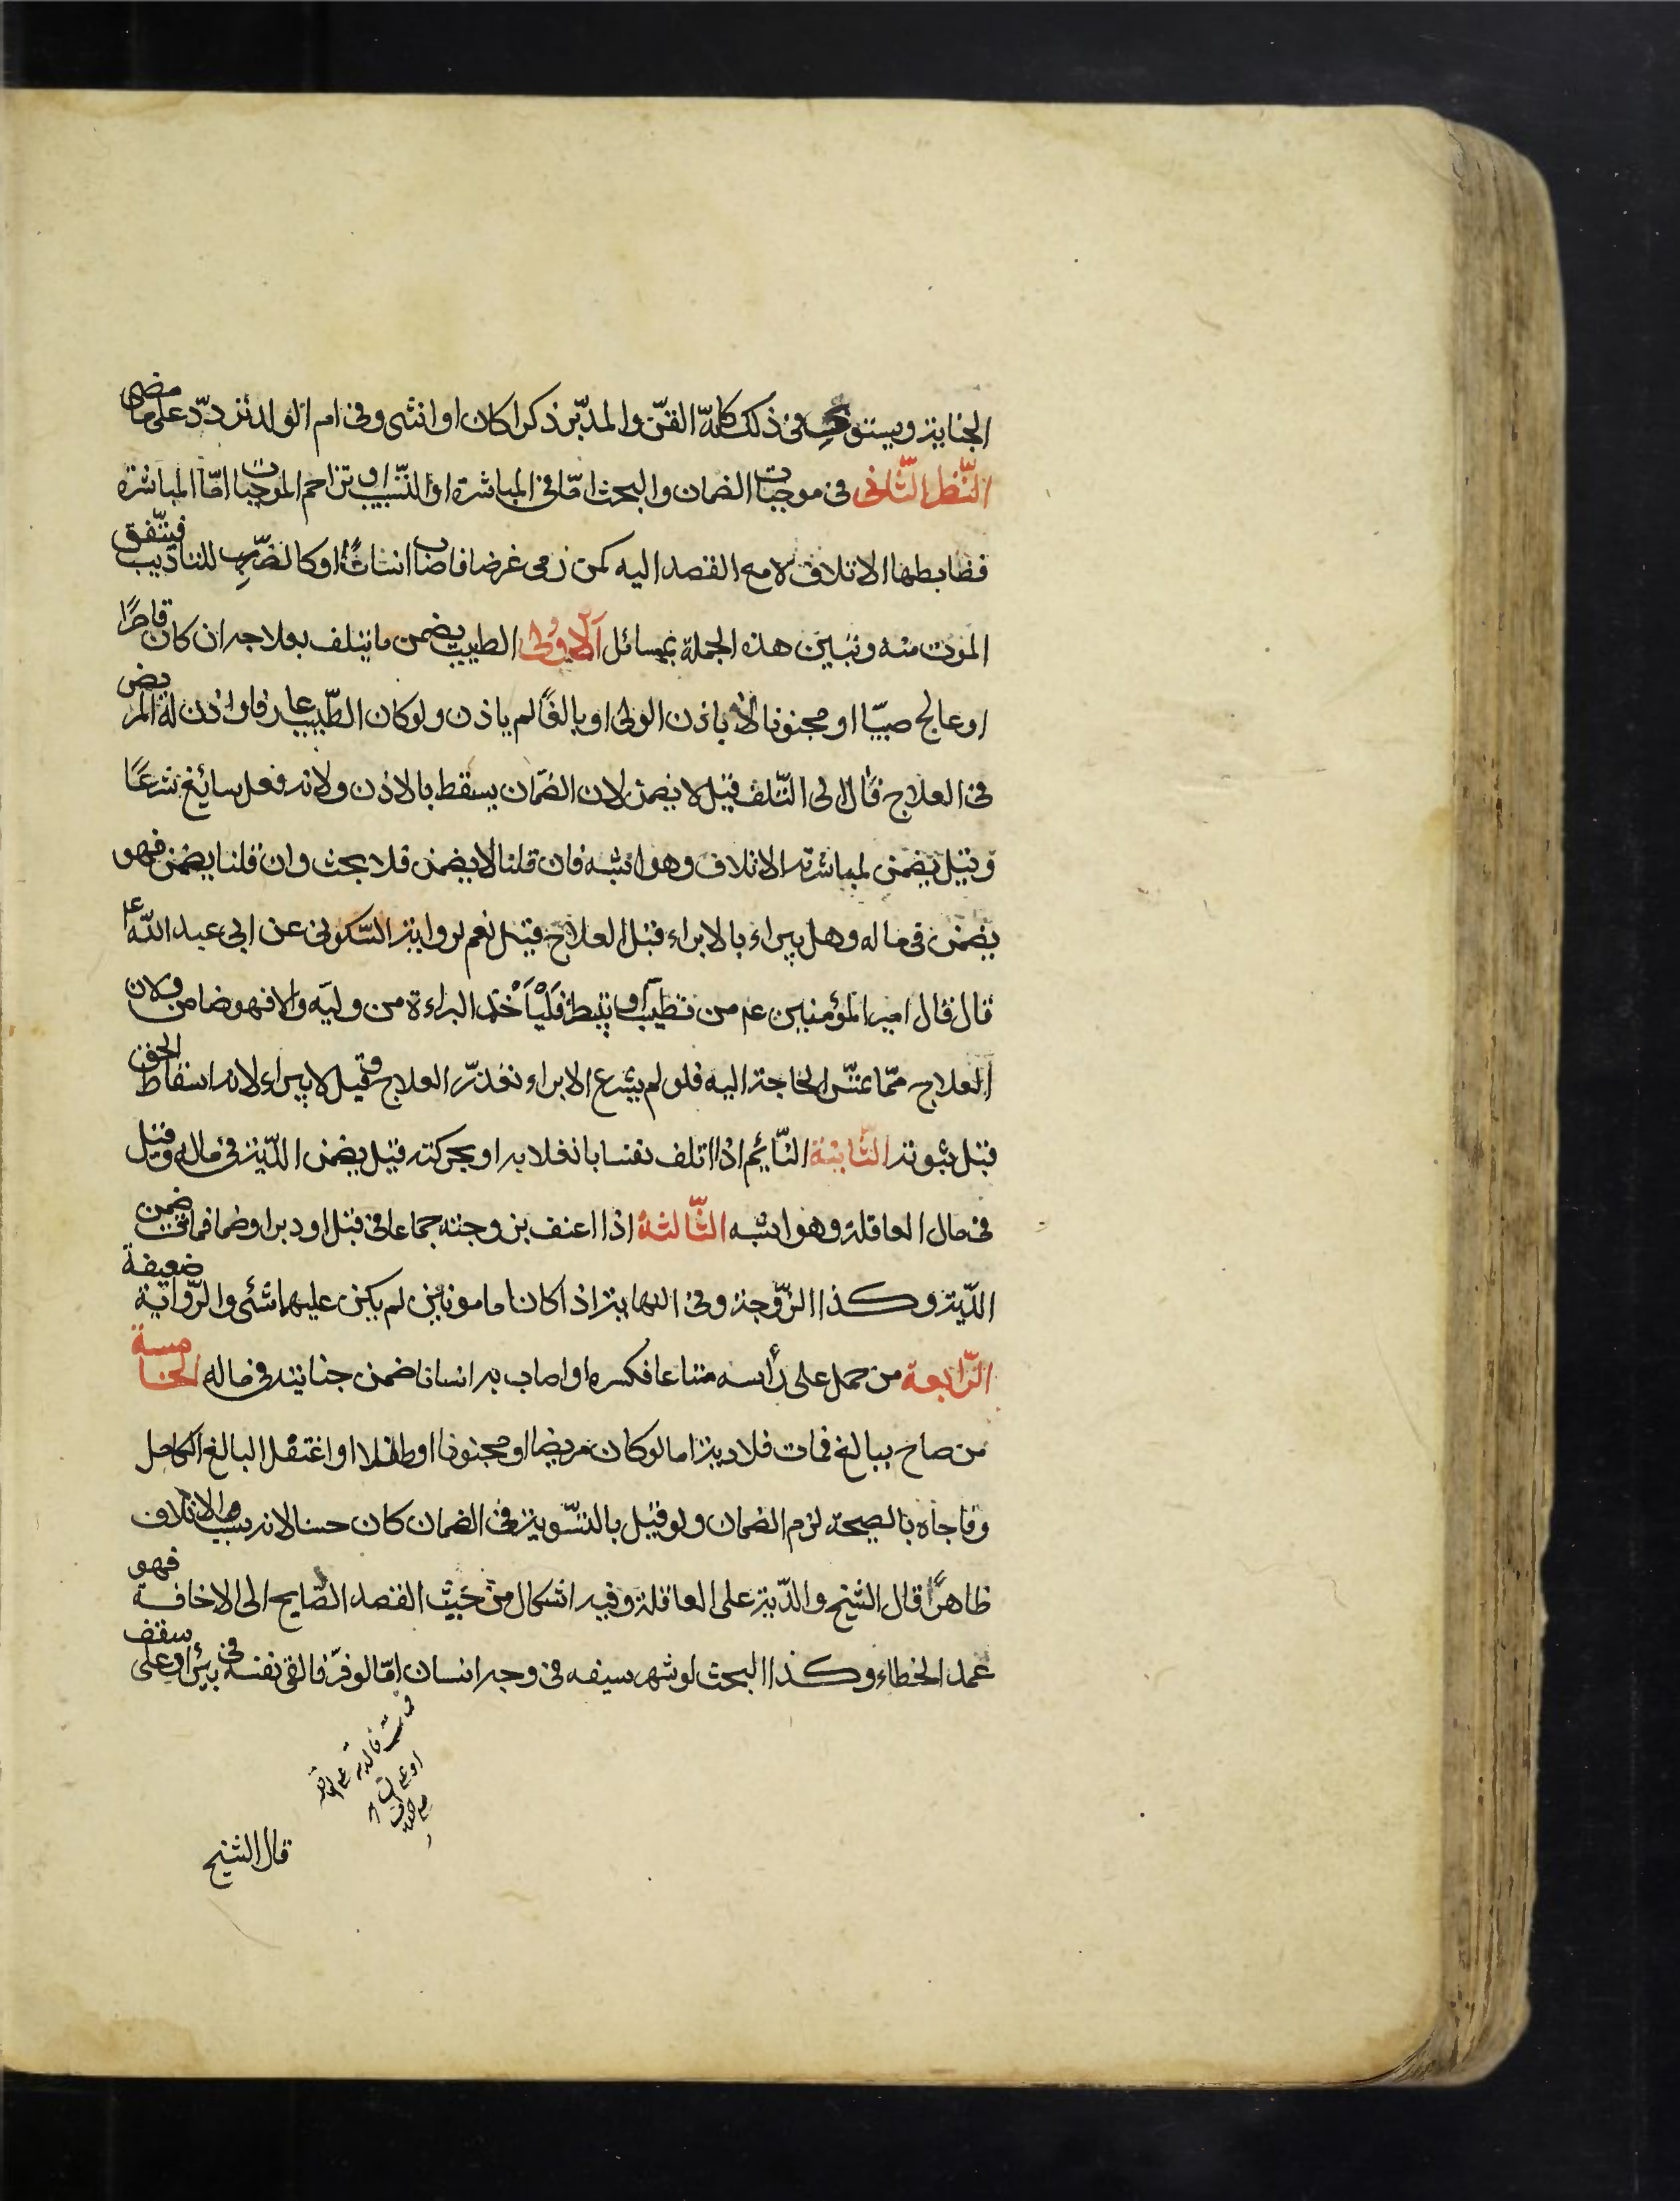 الجناية ويستوى فى ذلك كله القن والمدبر ذكرا كان او انثى وفى ام الولد تردد على ما مضى
النظر الثانى فى موجبات الضمان والبحث اما فى المباشرة او التسبيب او تزاحم الموجبات اما المباشرة
فضابطها الاتلاف لا مع القصد اليه كمن رمى غرضا فاصاب انسانا او كالضرب للتاديب فيتفق
الموت منه وتبين هذه الجملة بمسائل الاولى الطبيب يضمن ما يتلف بعلاجه ان كان قاصرا
او عالج صبيّا او مجنونا لا باذن الولى او بالغًا لم ياذن ولو كان الطّبيب عارفا واذن له المريض
فى العلاج فآل الى التّلف قيل لا يضمن لان الضّمان يسقط بالاذن ولانه فعل سائغ شرعًا
وقيل يضمن لمباشرته الاتلاف وهو اشبه فان قلنا لا يضمن فلا بحث وان قلنا يضمن فهو
يضمن فى ماله وهل يبراء بالابراء قبل العلاج قيل نعم لرواية السّكونى عن ابى عبد الله ع
قال قال امير المؤمنين عم من تطيب او تبيطر فَلْيَأْخُذ البراءة من وليّه والا فهو ضامن ولان
العلاج ممّا تمسّ الحاجة اليه فلو لم يشرع الابراء تعذّر العلاج وقيل لا يبراء لانه اسقاط الحق
قبل ثبوته الثّانية النّائم اذا اتلف نفسا بانقلابه او بحركته قيل يضمن الدّية فى ماله وقيل
فى مال العاقلة وهو اشبه الثّالثة اذا اعنف بزوجته جماعا فى قبل او دبر او ضما فماتت ضمن
الدّية وكذا الزّوجة وفى النهاية اذا كانا مامونين لم يكن عليهما شئ والرّواية ضعيفة
الرّابعة من حمل على رأسه متاعا فكسره او اصاب به انسانا ضمن جنايته فى ماله الخامسة
من صاح ببالغ فمات فلا دية اما لو كان مريضا او مجنونا او طفلا او اغتفل البالغ الكامل
وفاجأه بالصيحة لزم الضمان ولو قيل بالتسّوية فى الضمان كان حسنا لانه سبب الاتلاف
ظاهرًا قال الشّيخ والدّية على العاقلة وفيه اشكال من حيث القصد الصّايح الى الاخافة فهو
عمد الخطاء وكذا البحث لو شهر سيفه فى وجه انسان امّا لو فرّ فالقى نفسه فى بئر او على سقف
قال الشيخ